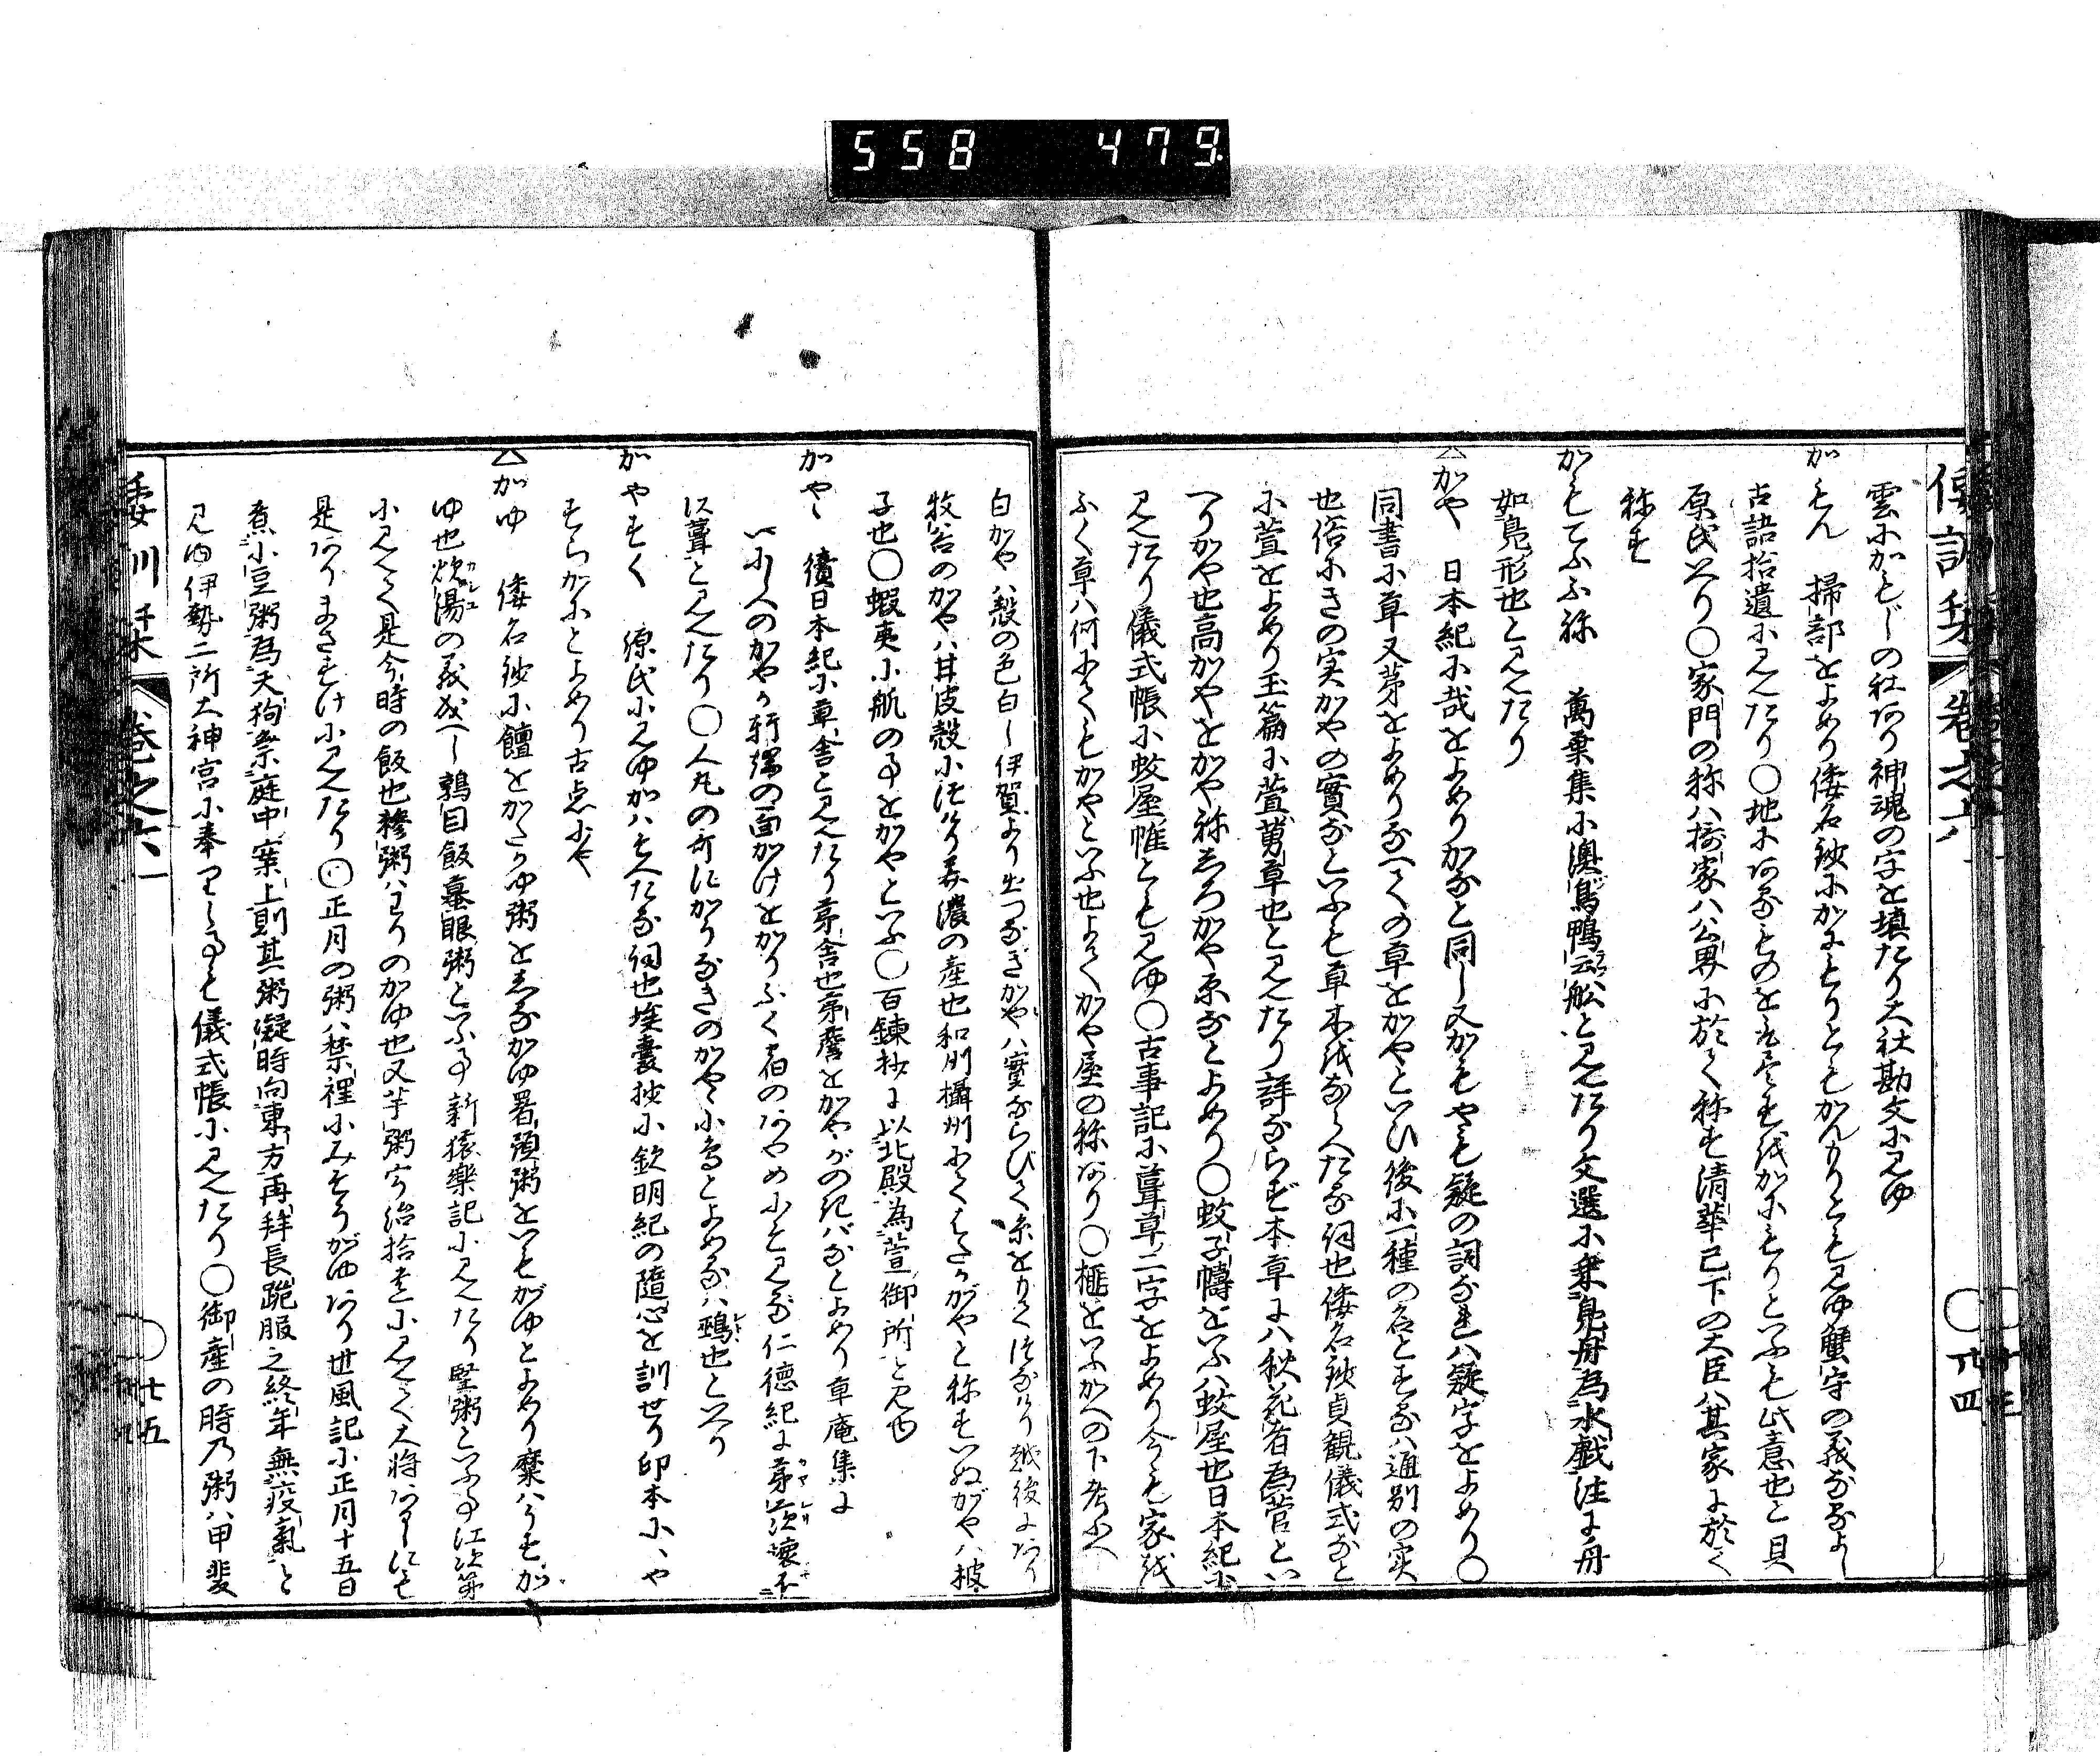 558 479
倭訓栞 巻之六 ○廿四
雲にかもじの社あり神魂の字を填たり大社勘文に見ゆ
かもん 掃部をよめり倭名鈔にかにもりともかんもりとも見ゆ蟹守の義なるよし
古語拾遺に見えたり○地にあるものを
原氏いへり○家門の称ハ摂家ハ公界に於て称す清華已下の大臣ハ其家に於て
称す
かもてふふね 萬葉集に澳鳥鴨云舩と見えたり文選に乗鳧舟為水戯注に舟
如鳧形也と見えたり
△かや 日本紀に哉をよめりかなと同し又かもやも疑の詞なれハ疑字をよめり○
同書に草又茅をよめりなへての草をかやといひ後に一種の名とするハ通別の
也俗にきの実かやの實なといふも草木をなへたる詞也倭名鈔貞観儀式なと
に萱をよめり玉篇に萱萬草也と見えたり詳ならず本草にハ秋花者為菅とい
へりかや也高かやをかや祢しろかや原なとよめり○蚊子幬をいふハ蚊屋也日本紀に
見えたり儀式帳に蚊屋帷とも見ゆ○古事記に葺草二字をよめり今も家を
ふく草ハ何にてもかやといふ也よてかや屋の称あり○榧をいふかへの下考ふへし
白かやハ殻の色白し伊賀より出つなぎかやハ實ならびて糸をもてつなけり越後にあり
牧谷のかやハ其皮殻につけり美濃の産也和州攝州にてはたかがやと称すいぬがやハ披
子也○蝦夷小舩の事をかやといふ○百錬抄に以北殿為萱御所と見ゆ
かやゝ 續日本紀に草舎と見えたり茅舎也茅簷をかやがのきバなとよめり草庵集に
いにしへのかやか軒端の面かけをかりふく宿のあやめにそ見る仁徳紀に茅茨壊不
以葺と見えたり○人丸の哥にかりなきのかやゝ小鳥とよめるハ鵐也といへり
かやすく 源氏に見ゆかハそへたる詞也壒嚢抄に欽明紀の隨心を訓せり印本にゝや
すらかにとよめり古点にや
△かゆ 倭名鈔に饘をかたかゆ粥をしるかゆ署預粥をいもがゆとよめり糜ハうすか
ゆ也炊湯の義成へし鶉目飯蟇眼粥といふ事新猿樂記に見えたり堅粥といふ事江次第
に見えて是今時の飯也糝粥ハわりのかゆ也又芋粥宇治拾遺に見えて大将にも
是ありまさすけに見えたり○正月の粥ハ禁裡にみそうがゆあり世風記に正月十五日
煮小豆粥為天狗祭庭中案上則其粥凝時向東方再拜長跪服之終年無疫氣と
見ゆ伊勢二所大神宮に奉りし事も儀式帳に見えたり○御産の時乃粥ハ甲斐
倭訓栞 巻之六 ○廿五